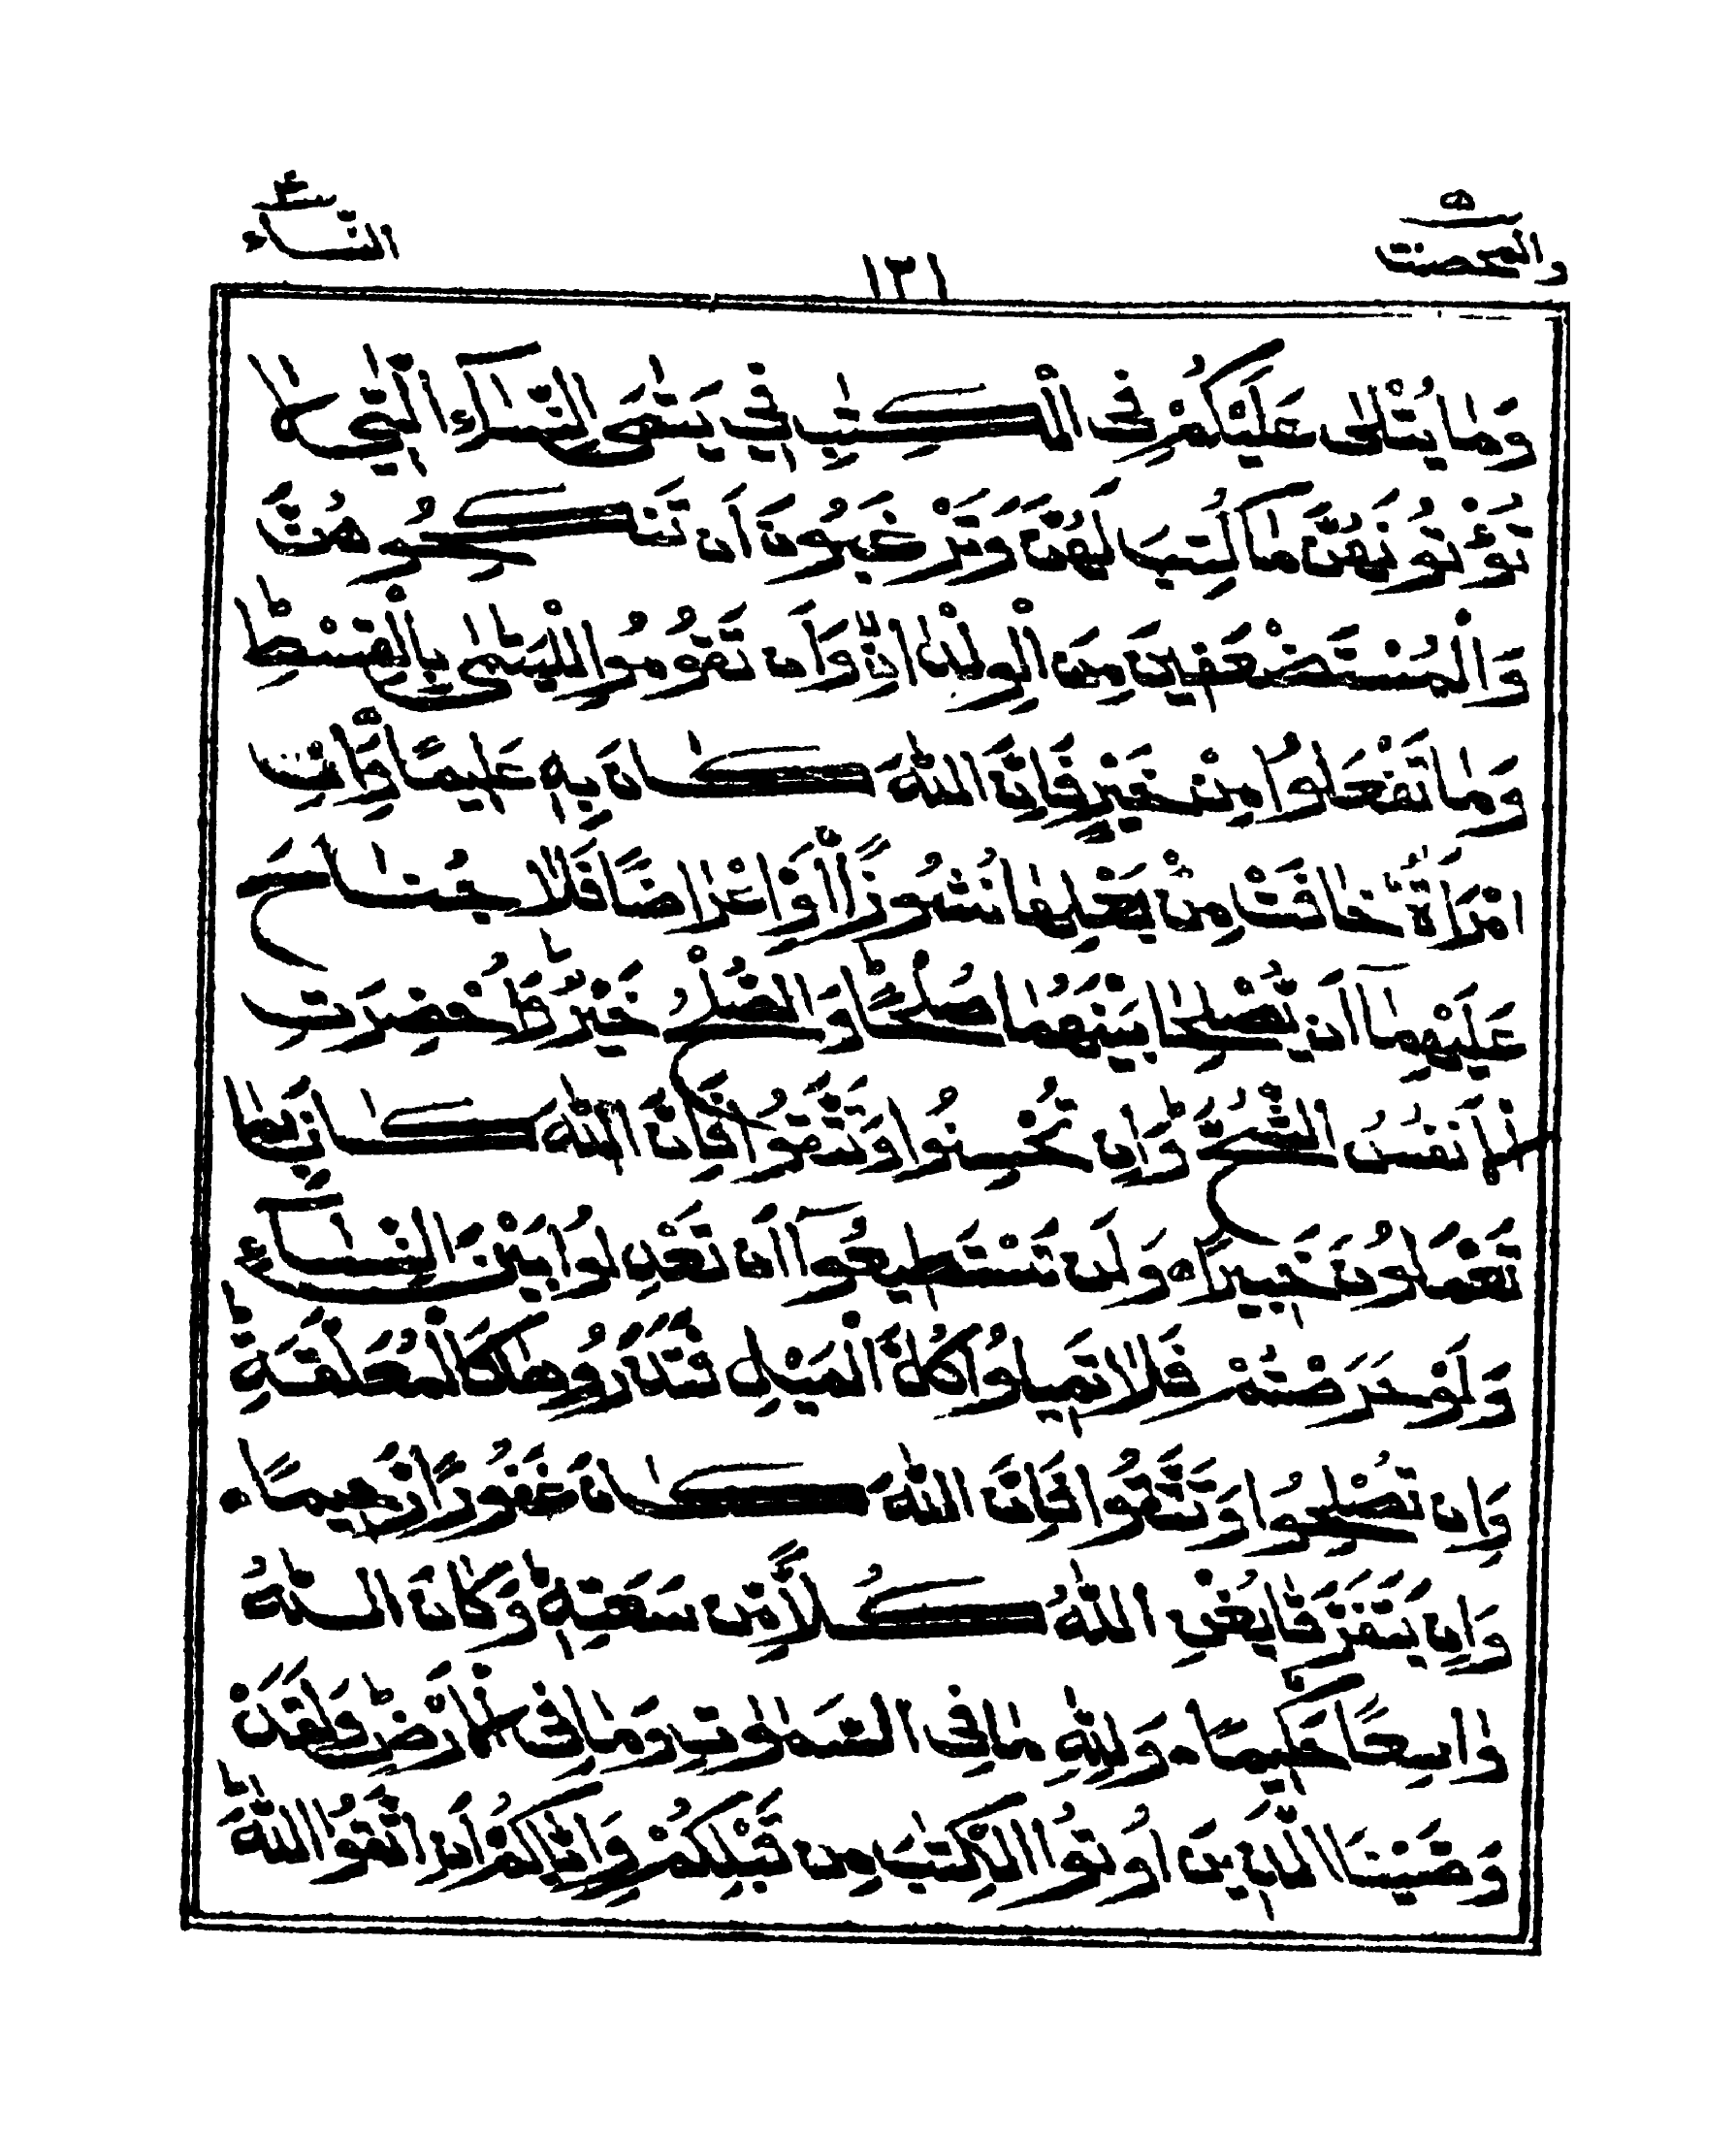 والمحصنت ٥
١٣١
النساء ٤
وَمَا يُتْلٰى عَلَيْكُمْ فِى الْكِتٰبِ فِيْ يَتٰمَى النِّسَآءِ الّٰتِيْ لَا
تُؤْتُوْنَهُنَّ مَا كُتِبَ لَهُنَّ وَتَرْغَبُوْنَ اَنْ تَنْكِحُوْهُنَّ
وَالْمُسْتَضْعَفِيْنَ مِنَ الْوِلْدَانِ وَاَنْ تَقُوْمُوْا لِلْيَتٰمٰى بِالْقِسْطِ ؕ
وَمَا تَفْعَلُوْا مِنْ خَيْرٍ فَاِنَّ اللّٰهَ كَانَ بِهٖ عَلِيْمًا وَّاِنِ
امْرَاَةٌ خَافَتْ مِنْۢ بَعْلِهَا نُشُوْزًا اَوْ اِعْرَاضًا فَلَا جُنَاحَ
عَلَيْهِمَآ اَنْ يُّصْلِحَا بَيْنَهُمَا صُلْحًا ؕ وَالصُّلْحُ خَيْرٌ ؕ وَاُحْضِرَتِ
الْاَنْفُسُ الشُّحَّ ؕ وَاِنْ تُحْسِنُوْا وَتَتَّقُوْا فَاِنَّ اللّٰهَ كَانَ بِمَا
تَعْمَلُوْنَ خَبِيْرًا ه وَلَنْ تَسْتَطِيْعُوْٓا اَنْ تَعْدِلُوْا بَيْنَ النِّسَآءِ
وَلَوْ حَرَصْتُمْ فَلَا تَمِيْلُوْا كُلَّ الْمَيْلِ فَتَذَرُوْهَا كَالْمُعَلَّقَةِ ؕ
وَاِنْ تُصْلِحُوْا وَتَتَّقُوْا فَاِنَّ اللّٰهَ كَانَ غَفُوْرًا رَّحِيْمًا ه
وَاِنْ يَّتَفَرَّقَا يُغْنِ اللّٰهُ كُلًّا مِّنْ سَعَتِهٖ ؕ وَكَانَ اللّٰهُ
وَاسِعًا حَكِيْمًا ه وَلِلّٰهِ مَا فِى السَّمٰوٰتِ وَمَا فِى الْاَرْضِ ؕ وَلَقَدْ
وَصَّيْنَا الَّذِيْنَ اُوْتُوا الْكِتٰبَ مِنْ قَبْلِكُمْ وَاِيَّاكُمْ اَنِ اتَّقُوا اللّٰهَ ؕ